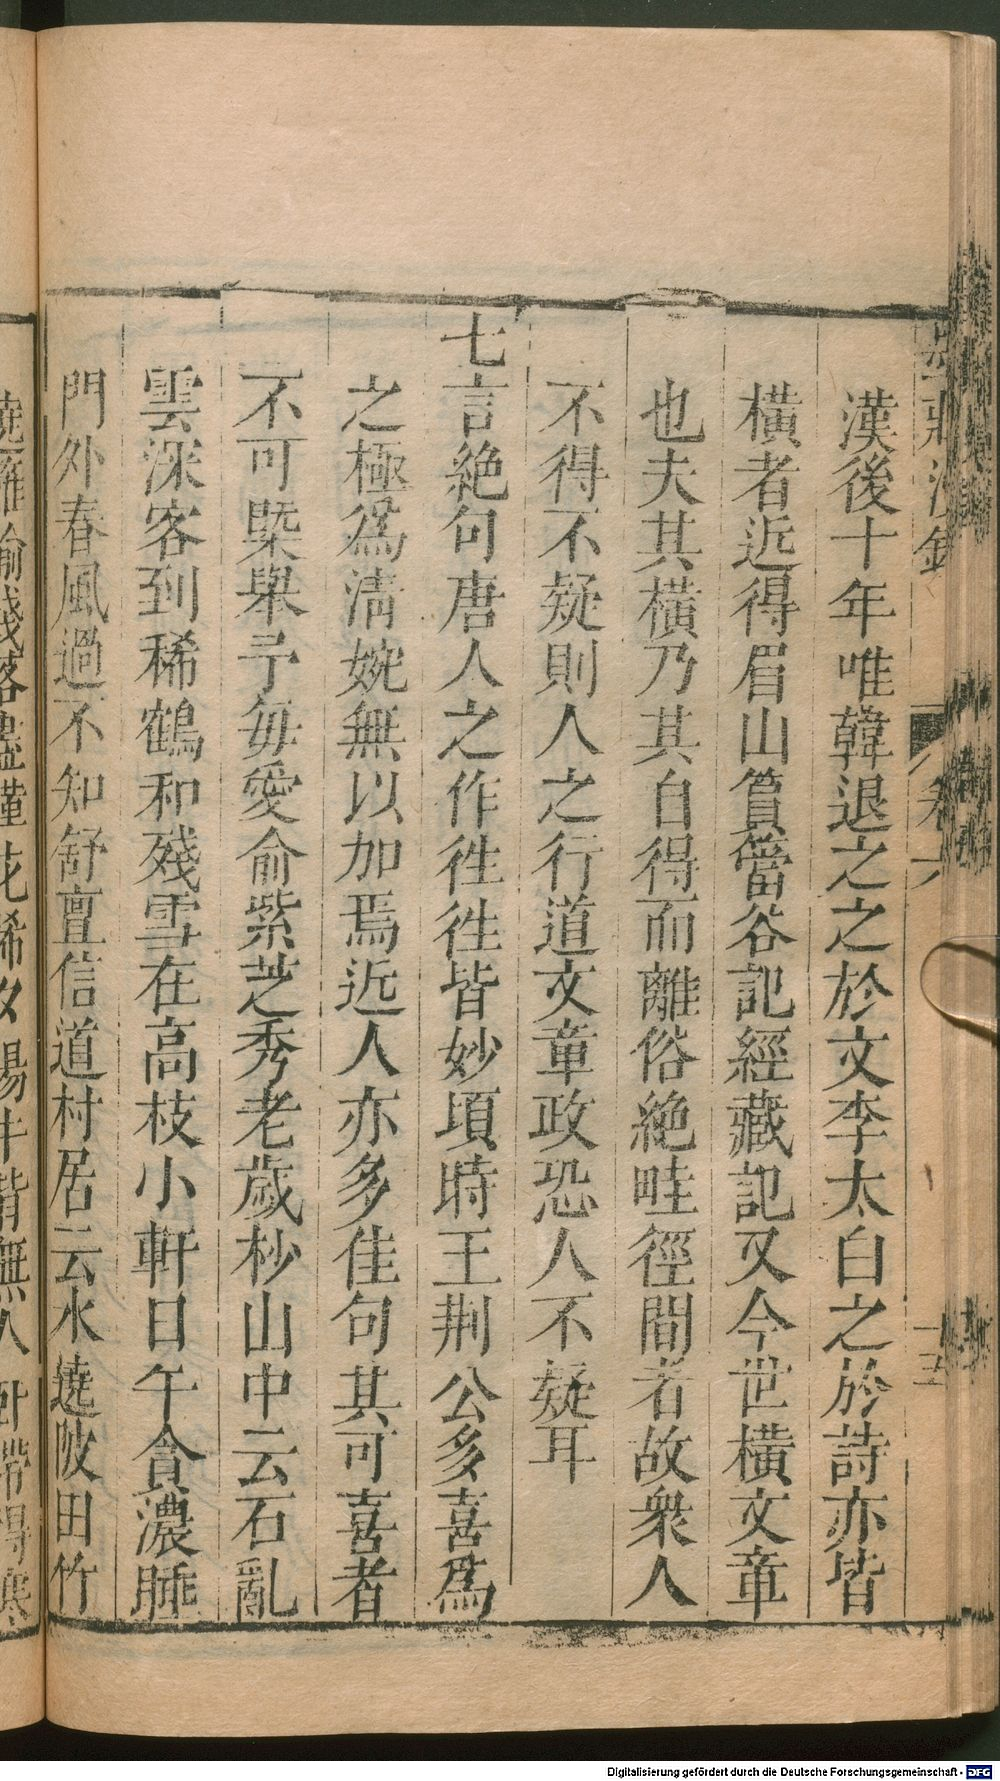 漢後十年唯韓退之之於文李太白之於詩亦皆
橫者近得眉山篔簹谷記經藏記又今世橫文章
也夫其橫乃其自得而離俗絶畦徑間者故衆人
不得不疑則人之行道文章政恐人不疑耳
七言絶句唐人之作徃徃皆妙頃時王荆公多喜爲
之極爲淸婉無以加焉近人亦多佳句其可喜者
不可槩舉予每愛俞紫芝秀老歲杪山中云石亂
雲深客到稀鶴和殘雪在高枝小軒日午貪濃睡
門外春風過不知舒亶信道村居云水遶陂田竹
遶籬榆錢落盡槿花稀夕陽牛背無人卧帶得寒
卷六
十五
Digitalisierung gefördert durch die Deutsche Forschungsgemeinschaft - DFG